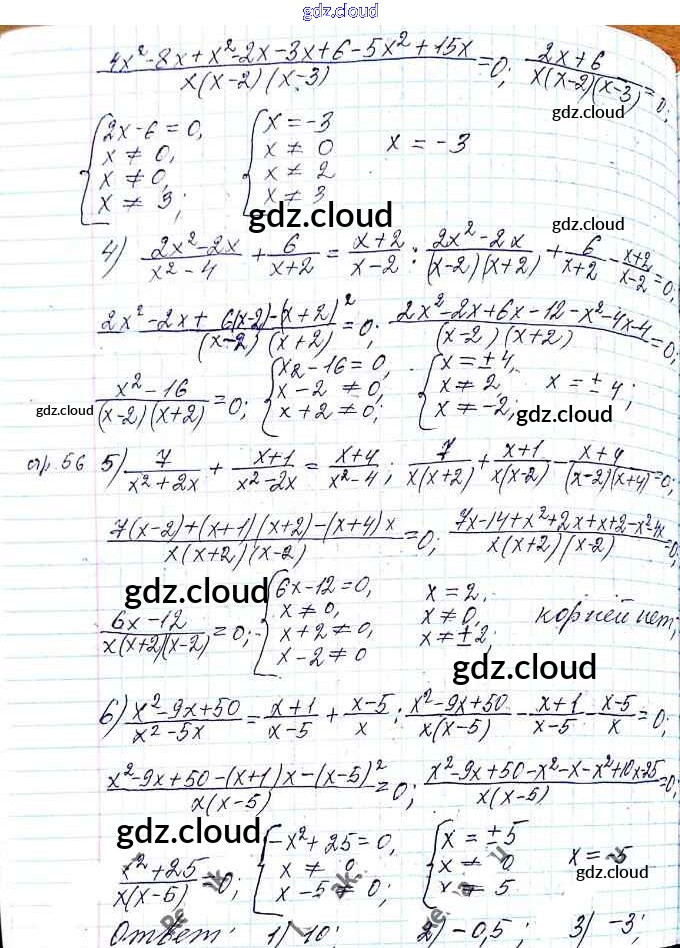 gdz.cloud
gdz.cloud
(4x²-8x+x²-2x-3x+6-5x²+15x)/(x(x-2)(x-3)) =0; (2x+6)/(x(x-2)(x-3)) =0;
gdz.cloud
{2x-6=0, {x=-3
x≠0, x≠0 x=-3
x≠0, x≠2
x≠3; x≠3
gdz.cloud
4) (2x²-2x)/(x²-4) + 6/(x+2) = (x+2)/(x-2); (2x²-2x)/((x-2)(x+2)) + 6/(x+2) - (x+2)/(x-2) =0;
(2x²-2x+6(x-2)-(x+2)²)/((x-2)(x+2)) =0; (2x²-2x+6x-12-x²-4x-4)/((x-2)(x+2)) =0;
(x²-16)/((x-2)(x+2)) =0; {x2-16=0, {x=±4,
x-2≠0, x≠2, x=±4;
x+2≠0; x≠-2;
gdz.cloud gdz.cloud gdz.cloud
стр. 56 5) 7/(x²+2x) + (x+1)/(x²-2x) = (x+4)/(x²-4); 7/(x(x+2)) + (x+1)/(x(x-2)) - (x+4)/((x-2)(x+4)) =0;
gdz.cloud gdz.cloud
(7(x-2)+(x+1)(x+2)-(x+4)x)/(x(x+2)(x-2)) =0; (7x-14+x²+2x+x+2-x²-4x)/(x(x+2)(x-2)) =0;
gdz.cloud
(6x-12)/(x(x+2)(x-2)) =0; {6x-12=0, x=2,
x≠0, x≠0, корней нет;
x+2≠0, x≠±2;
x-2≠0
gdz.cloud
6) (x²-9x+50)/(x²-5x) = (x+1)/(x-5) + (x-5)/x; (x²-9x+50)/(x(x-5)) - (x+1)/(x-5) - (x-5)/x =0;
(x²-9x+50-(x+1)x-(x-5)²)/(x(x-5)) =0; (x²-9x+50-x²-x-x²+10x-25)/(x(x-5)) =0;
gdz.cloud gdz.cloud
(x²+25)/(x(x-5)) =0; {-x²+25=0, {x=±5
x≠0 x≠0 x=-5
x-5≠0; x≠5
gdz.cloud
Ответ: 1) 10; 2) -0,5; 3) -3;